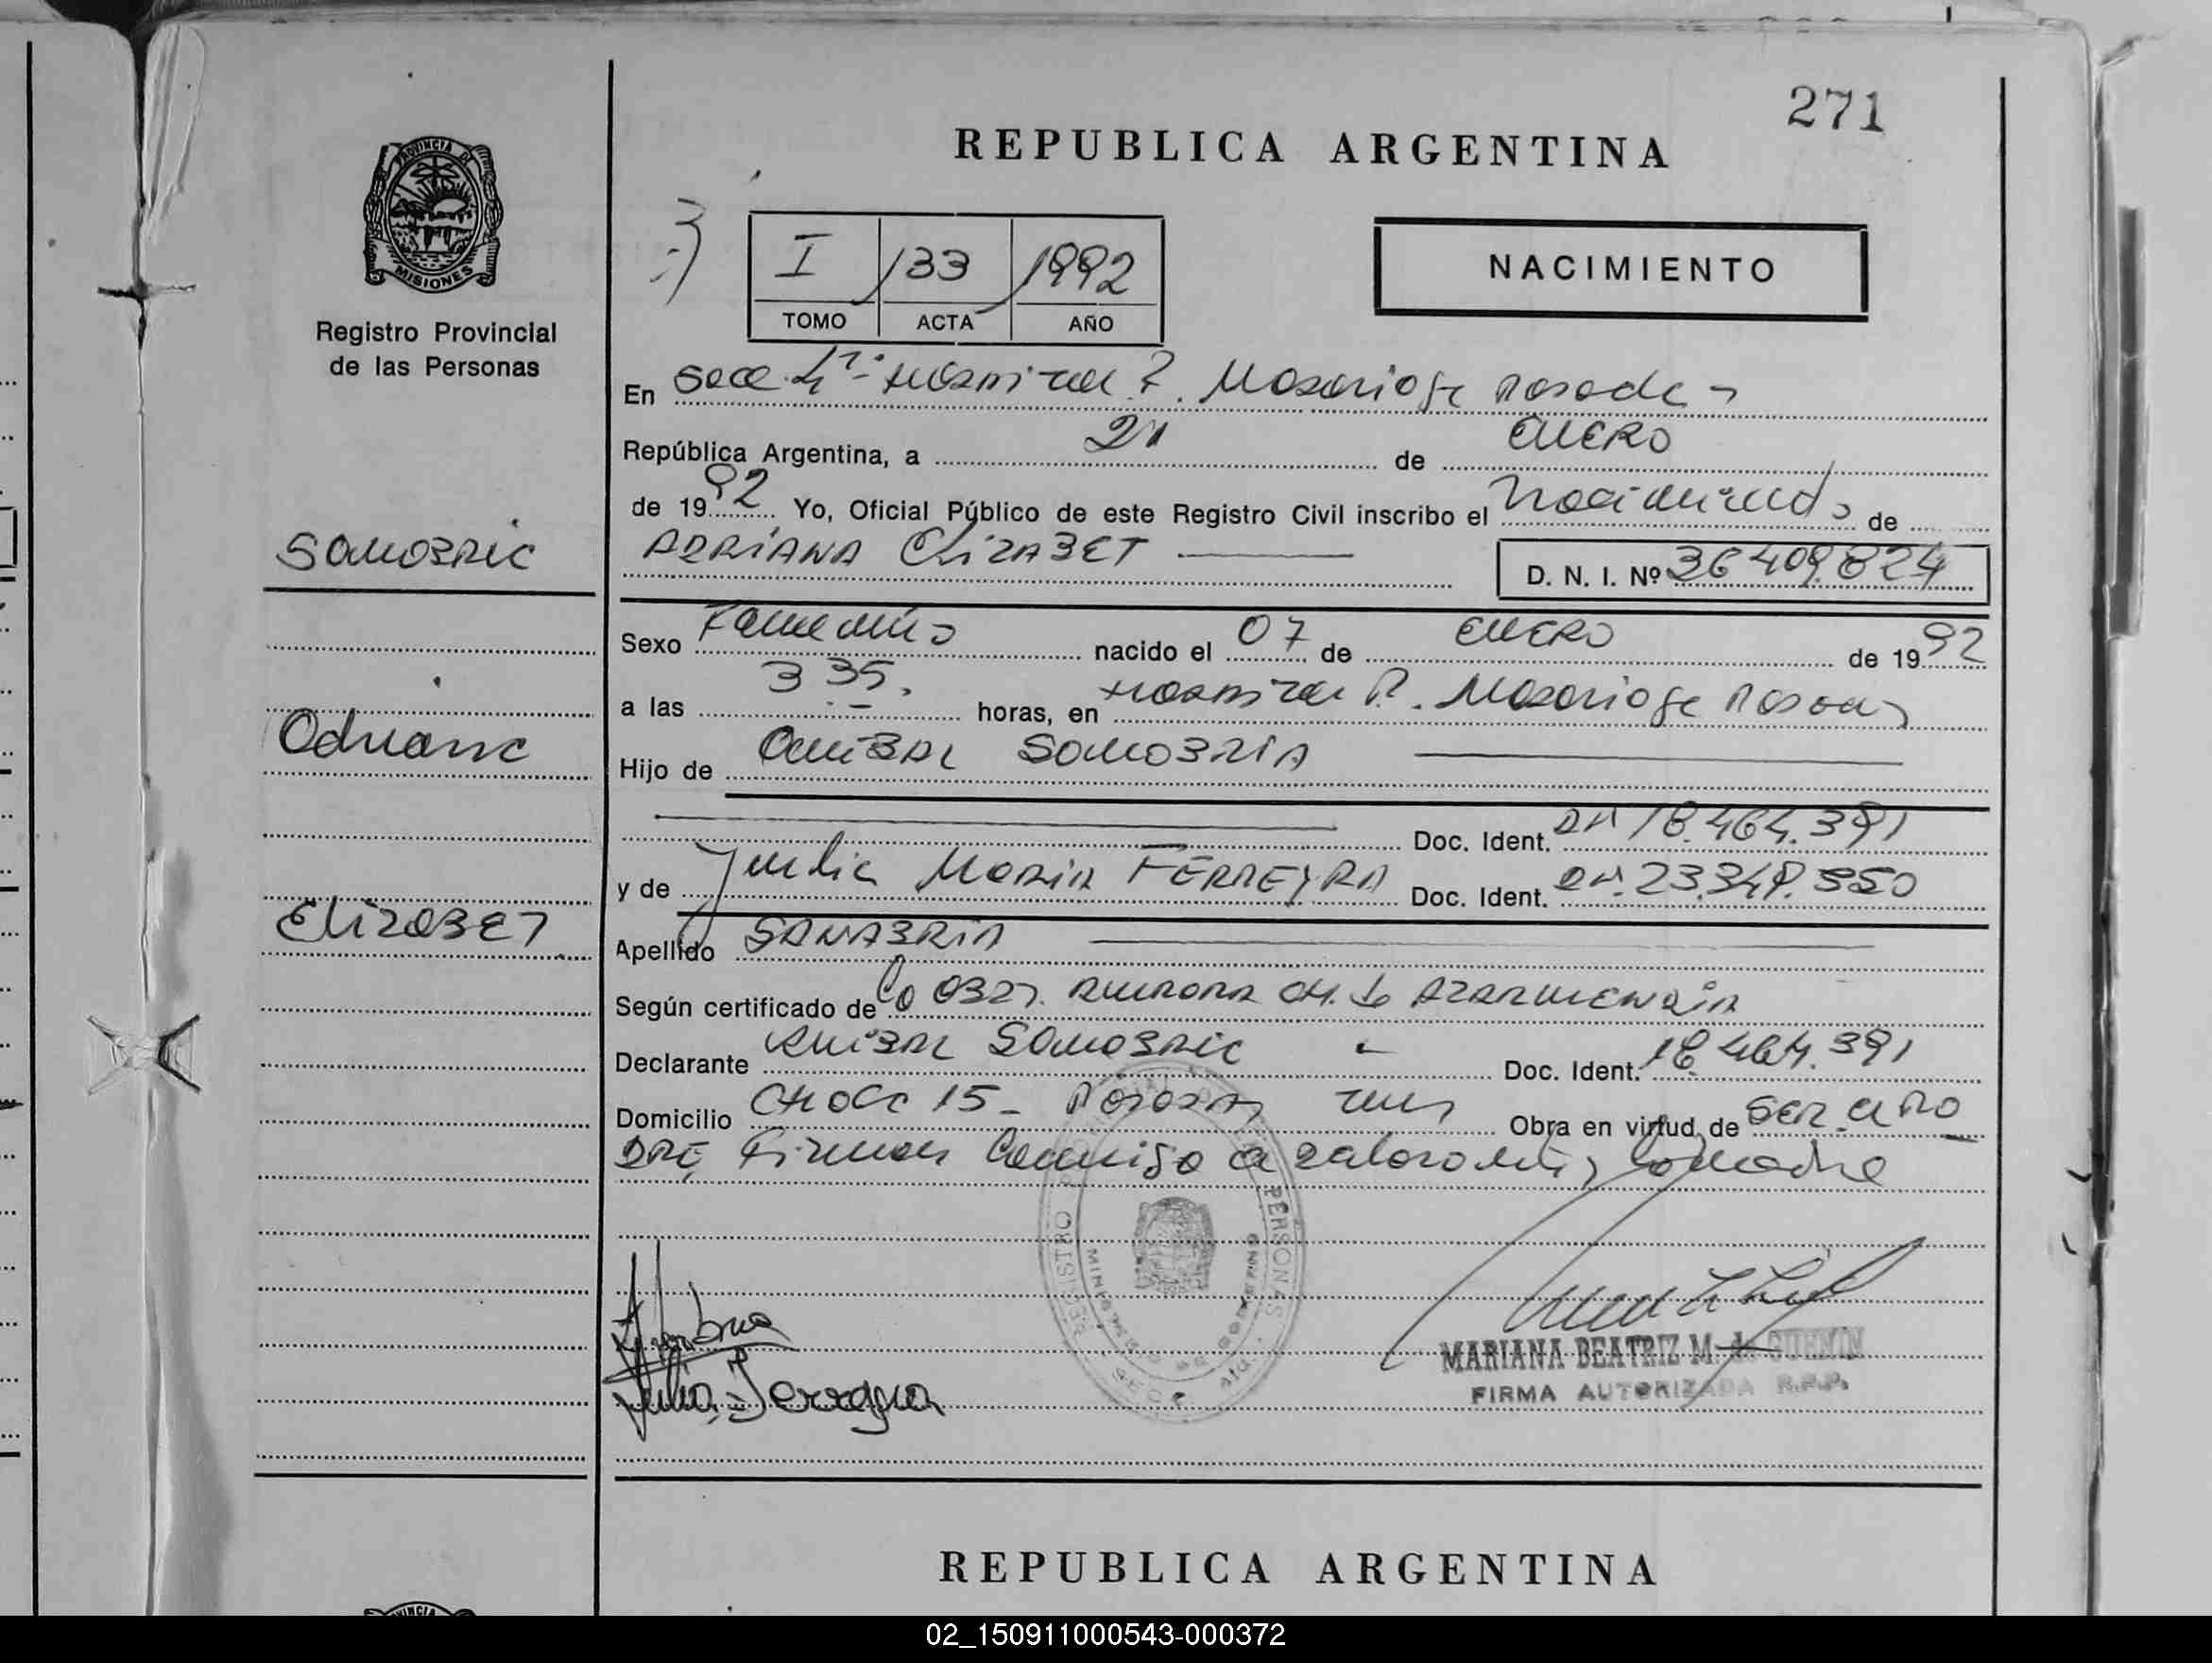 271
REPUBLICA ARGENTINA
PROVINCIA DE
MISIONES
Registro Provincial
de las Personas
I 133 1992
TOMO ACTA AÑO
NACIMIENTO
En Secc. Hospital R. Madariaga Posadas
República Argentina, a 21 de ENERO
de 1992 Yo, Oficial Público de este Registro Civil inscribo el Nacimiento de
ADRIANA ELIZABET
D. N. I. Nº 36409824
Sanabria
Adriana
Elizabet
Sexo Femenino nacido el 07 de ENERO de 1992
a las 3 35 horas, en Hospital R. Madariaga Posadas
Hijo de Anibal SANABRIA
Doc. Ident. 18.464.391
y de Julia Maria FERREYRA Doc. Ident. 23.348.350
Apellido SANABRIA
Según certificado de
Declarante Anibal Sanabria Doc. Ident. 18.464.391
Domicilio CHACR 15 - Posadas Obra en virtud de Ser el PA
DRE Firman Conmigo el declarante y la madre
REGISTRO PROVINCIAL DE LAS PERSONAS
MINISTERIO DE GOBIERNO
Julia Ferreyra
MARIANA BEATRIZ M. de
FIRMA AUTORIZADA R.P.P.
REPUBLICA ARGENTINA
02_150911000543-000372